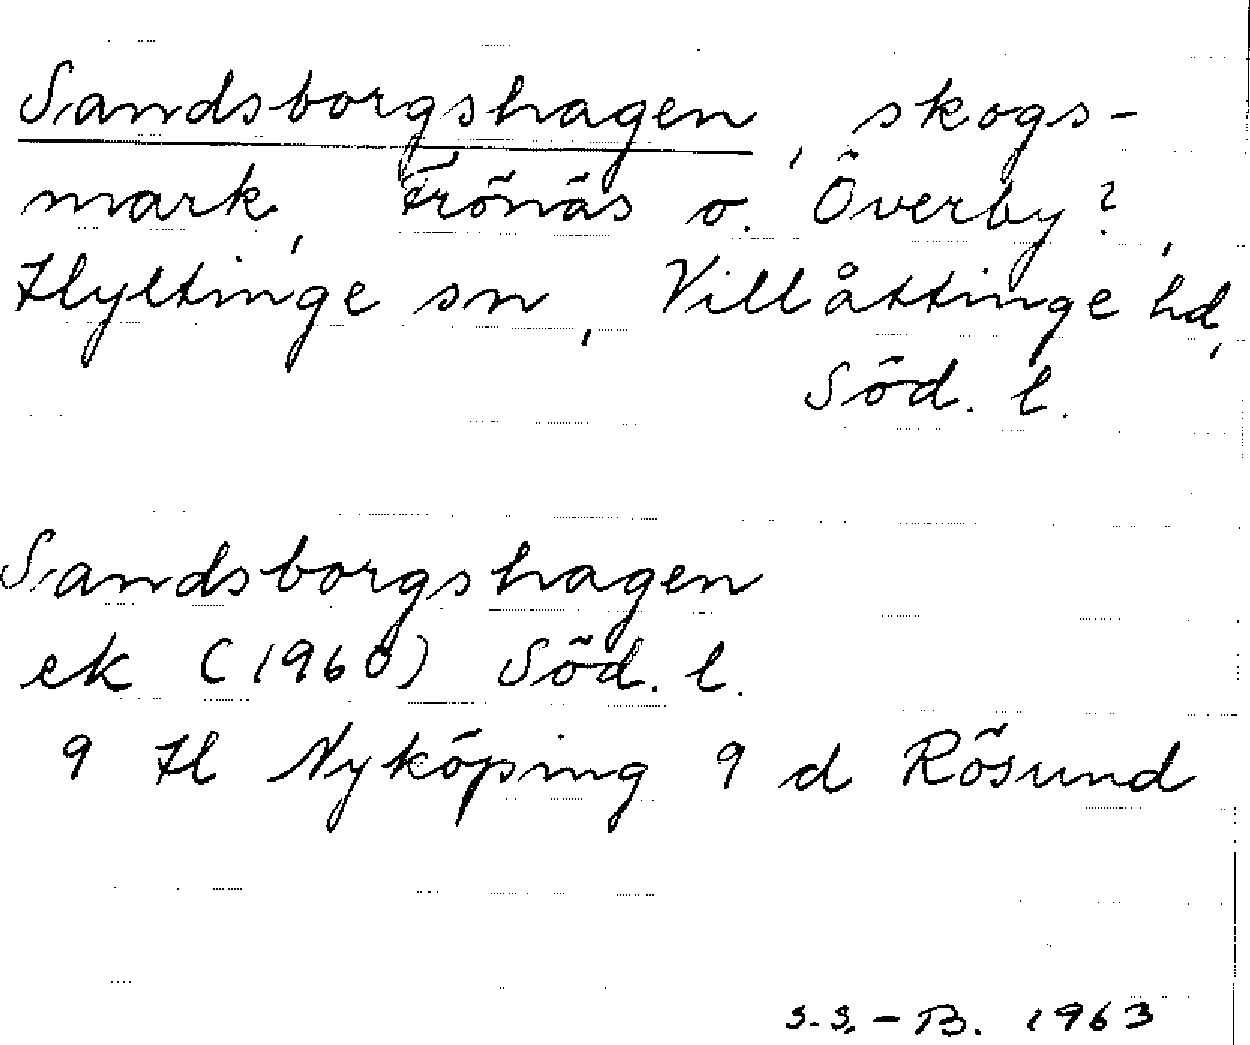 Sandsborgshagen, skogs-
mark, Frönäs o. Överby?,
Hyltinge sn, Villåttinge hd,
Söd. l.
Sandsborgshagen
ek (1960) Söd. l.
9 H Nyköping 9 d Rösund
S.S.-B. 1963